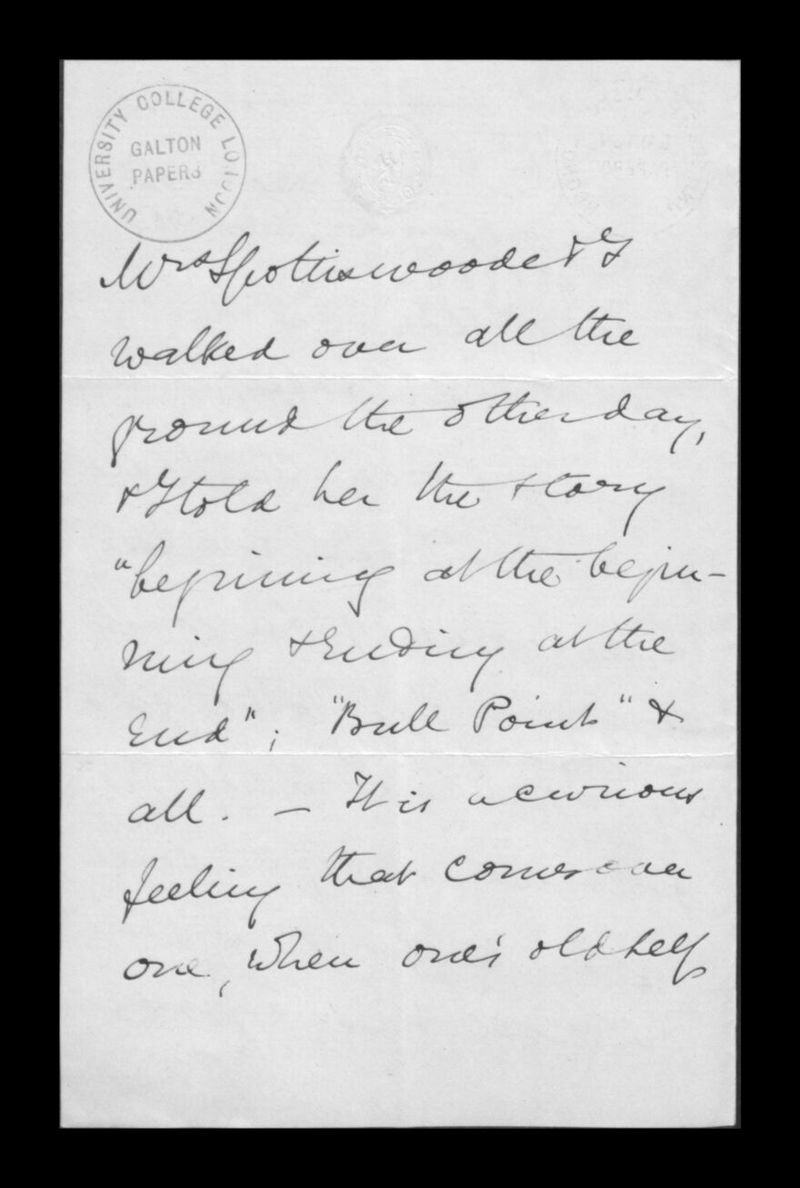 UNIVERSITY COLLEGE LONDON
GALTON
PAPERS
Mrs Spottiswoode & I
walked over all the
ground the other day,
& I told her the story
"beginning at the begin-
ning & Ending at the
End"; "Bull Point" &
all. — It is a curious
feeling that comes over
one, when one's old self